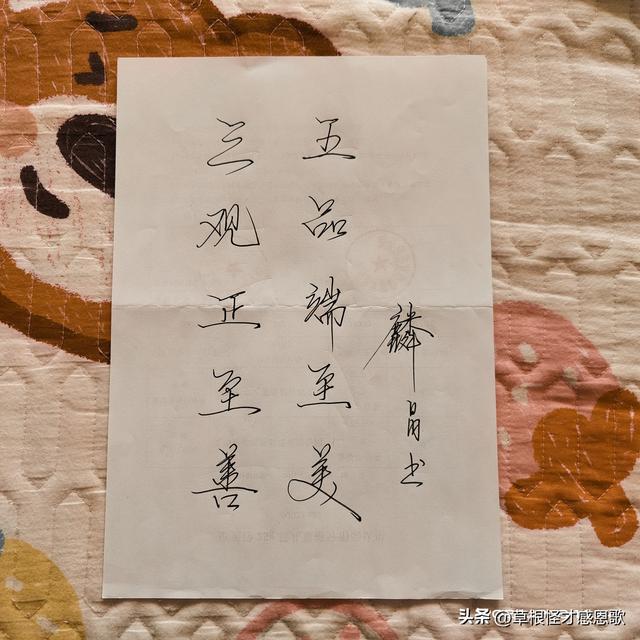 三观正至善
五品端至美
麟书
头条 @草根怪才感恩歌